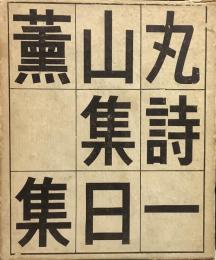 丸山薫
詩集
一日集